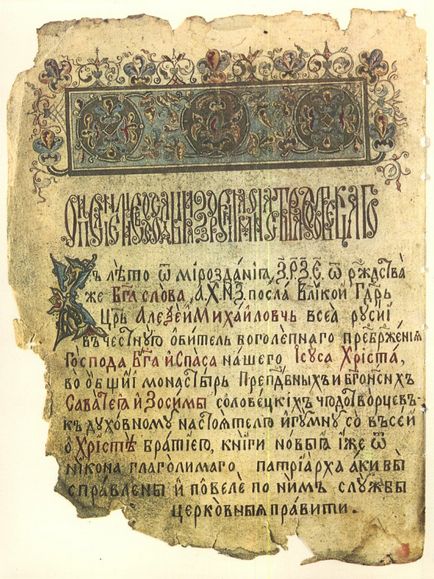 Въ лѣто ѿ мірозданіѧ, З.Р.Ѯ.Є, ѿ рж҃дства
же Бг҃а слова, А.Х.Н.З. посла Вл҃икой Гд҃рь
Цр҃ь Алеѯей Михайловчь всеа рꙋсіи
въ честнꙋю ѻбитель боголепнаго пребрж҃енія
Господа Бг҃а и Спаса нашего Ісуса Хріста,
во ѻбщій монастырь Препдⷪ҇бныхъ и Бгⷪ҇носнхъ
Саватеѧ и Зосимы соловецкіхъ чюдотворцевъ
къ дꙋховномꙋ настоѧтелю игꙋмнꙋ со всей
ѻ Хрістѣ братіею, книги новыѧ иже ѿ
никона глаголимаго, патріарха аки бы
справлены и повеле по нимъ слꙋжбы
церковныѧ правити.